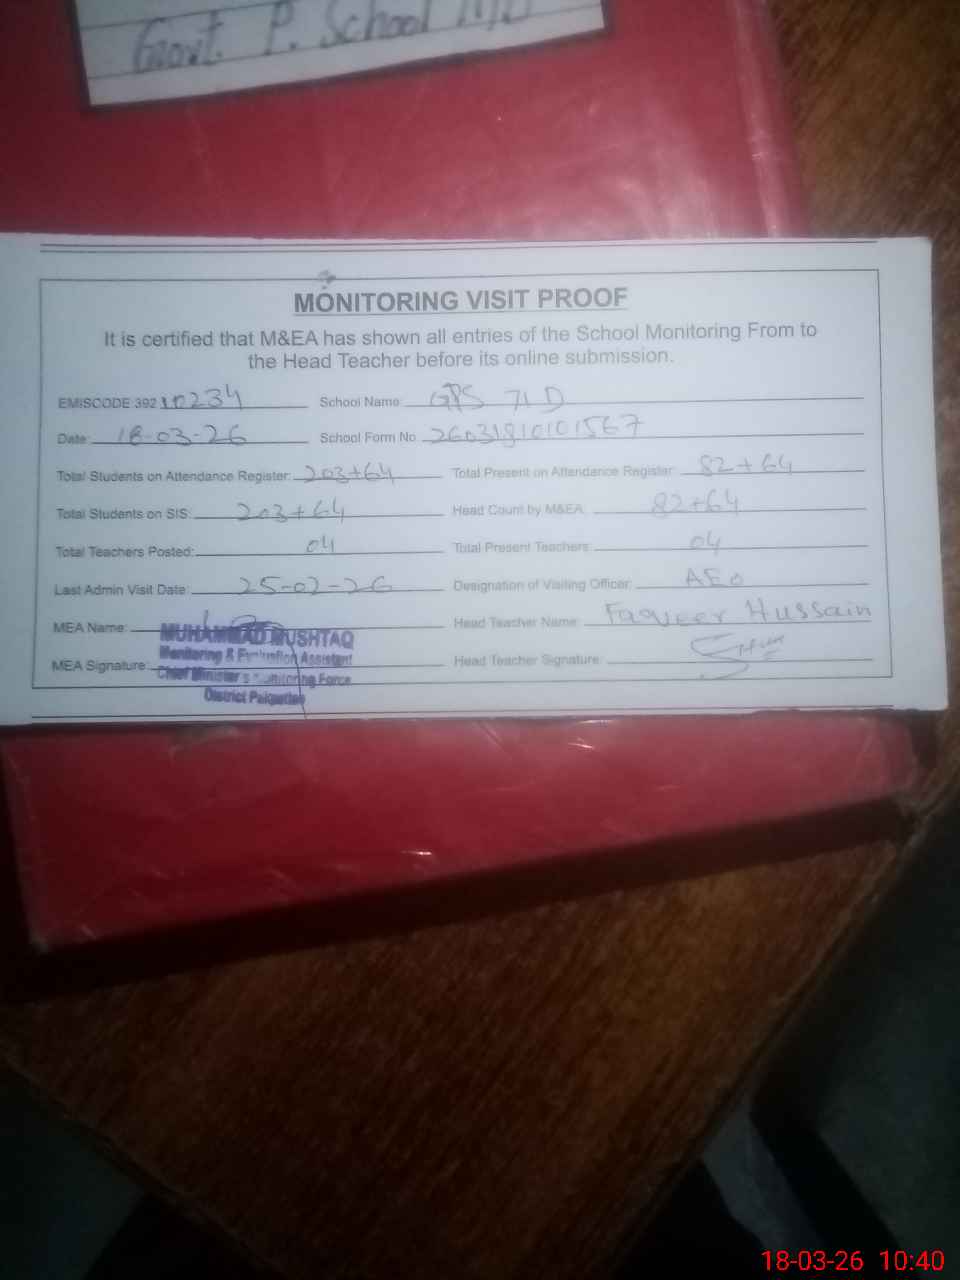 Govt. P. School 71/D
MONITORING VISIT PROOF
It is certified that M&EA has shown all entries of the School Monitoring From to
the Head Teacher before its online submission.
EMISCODE 392 10234 School Name: GPS 71 D
Date: 18-03-26 School Form No. 26031810101567
Total Students on Attendance Register: 203+64 Total Present on Attendance Register: 82+64
Total Students on SIS: 203+64 Head Count by M&EA: 82+64
Total Teachers Posted: 04 Total Present Teachers: 04
Last Admin Visit Date: 25-02-26 Designation of Visiting Officer: AEO
MEA Name: MUHAMMAD MUSHTAQ Head Teacher Name: Faqeer Hussain
Monitoring & Evaluation Assistant
MEA Signature: Head Teacher Signature:
Chief Minister's Monitoring Force
District Pakpattan
18-03-26 10:40